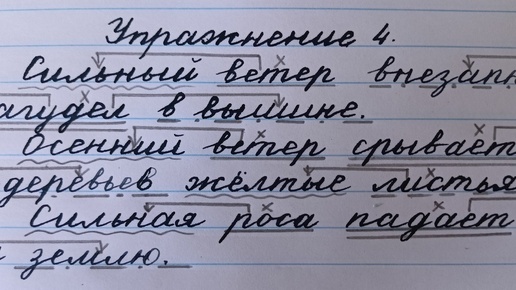 Упражнение 4.
Сильный ветер внезапн
агудел в вышине.
Осенний ветер срывает
деревьев жёлтые листья
Сильная роса падает
землю.